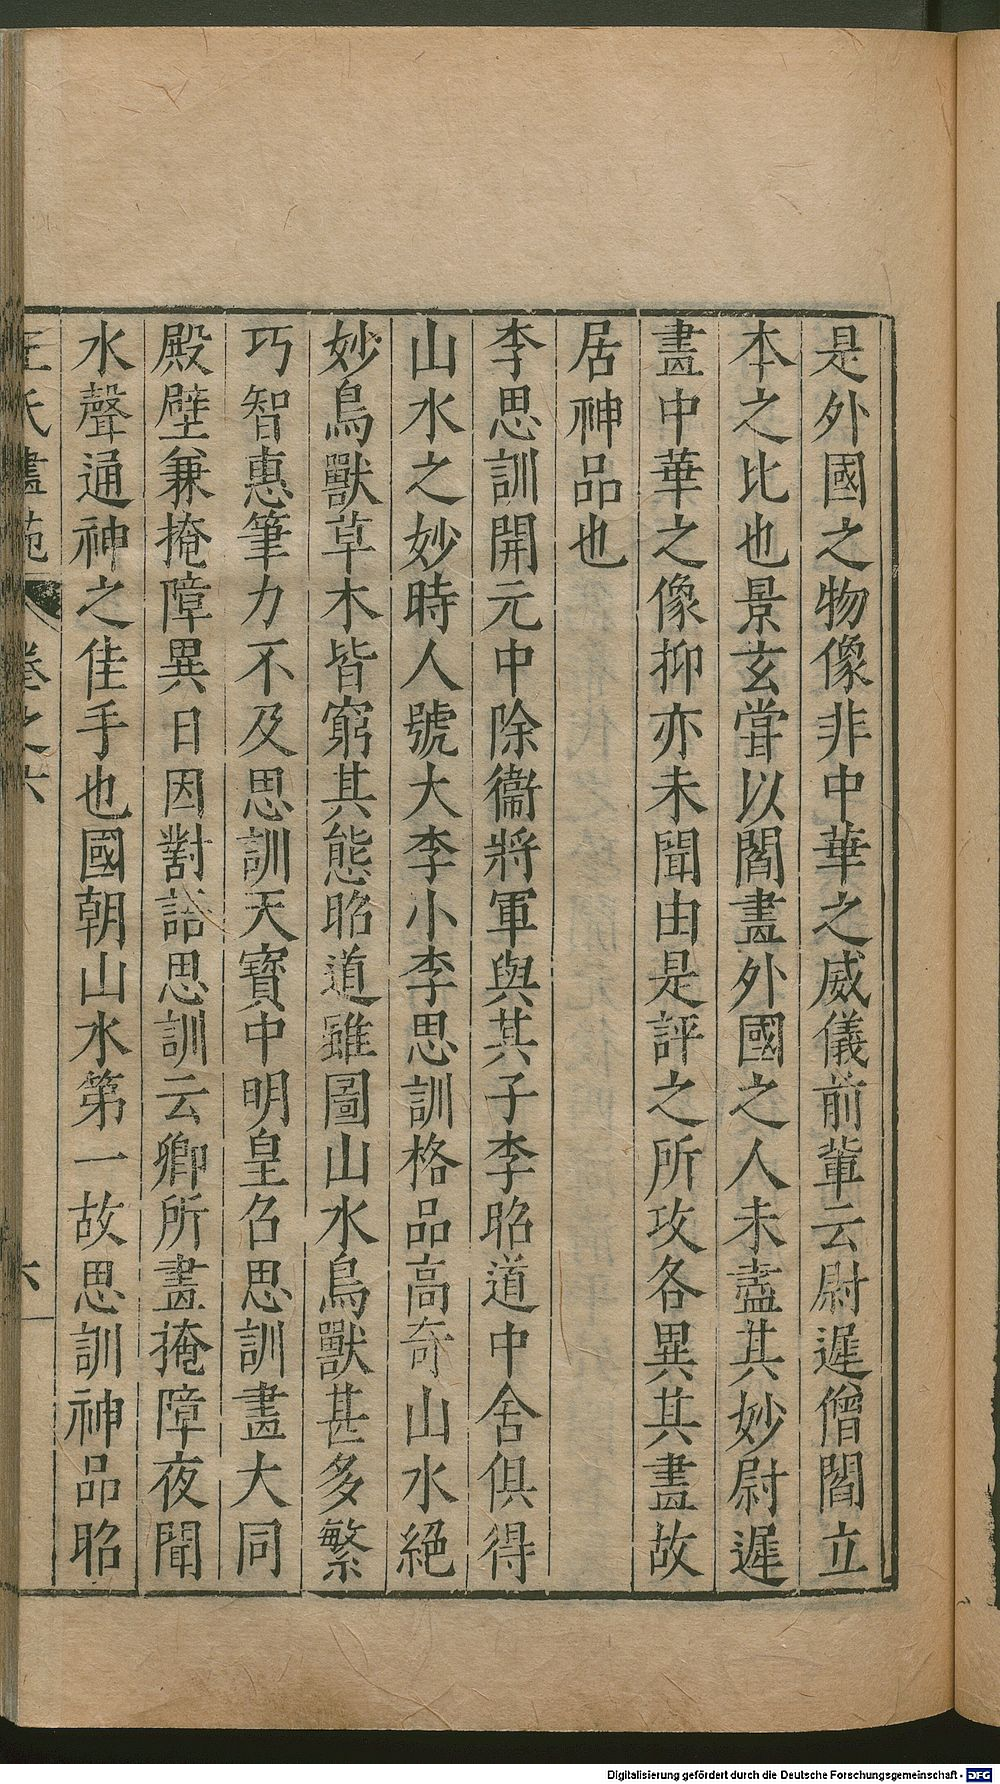 是外國之物像非中華之威儀前輩云尉遲僧閻立
本之比也景玄嘗以閻畫外國之人未盡其妙尉遲
畫中華之像抑亦未聞由是評之所攻各異其畫故
居神品也
李思訓開元中除衞將軍與其子李昭道中舍俱得
山水之妙時人號大李小李思訓格品高奇山水絕
妙鳥獸草木皆窮其態昭道雖圖山水鳥獸甚多繁
巧智惠筆力不及思訓天寶中明皇召思訓畫大同
殿壁兼掩障異日因對語思訓云卿所畫掩障夜聞
水聲通神之佳手也國朝山水第一故思訓神品昭
王氏畫苑 卷之六 六
Digitalisierung gefördert durch die Deutsche Forschungsgemeinschaft - DFG